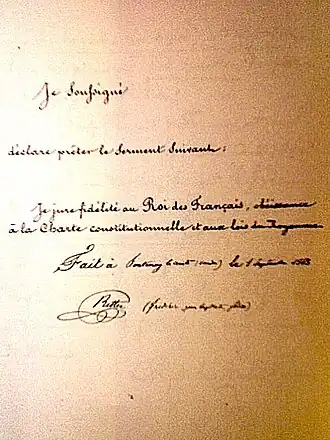 Je Soussigné
déclare prêter le Serment Suivant:
Je jure fidélité au Roi des Français, obéissance
à la Charte constitutionnelle et aux lois du Royaume
Fait à le
Ritter